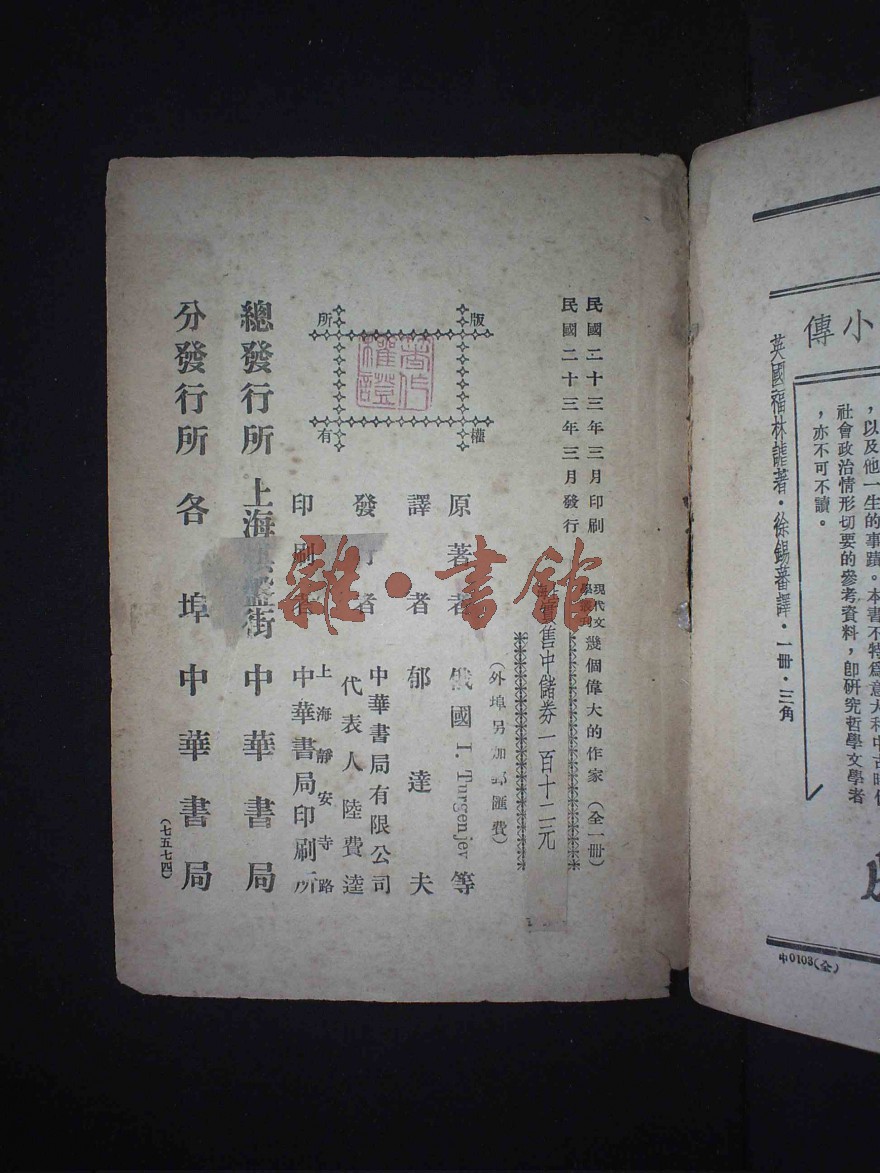 民國二十三年三月印刷
民國二十三年三月發行
現代文
學叢刊
幾個偉大的作家（全一冊）
實售中儲券一百十二元
（外埠另加郵匯費）
版權所有
著作權證
原著者 俄國 I. Turgenjev 等
譯者 郁達夫
發行者 中華書局有限公司
代表人 陸費逵
印刷者 上海靜安寺路
中華書局印刷所
總發行所 上海棋盤街 中華書局
分發行所 各埠中華書局
（七五七四）
雜·書館
小傳
，以及他一生的事蹟。本書不特為意大利中古時代
社會政治情形切要的參考資料，即研究哲學文學者
，亦不可不讀。
英國福林謨著·徐錫蕃譯·一冊·三角
中0103(全)